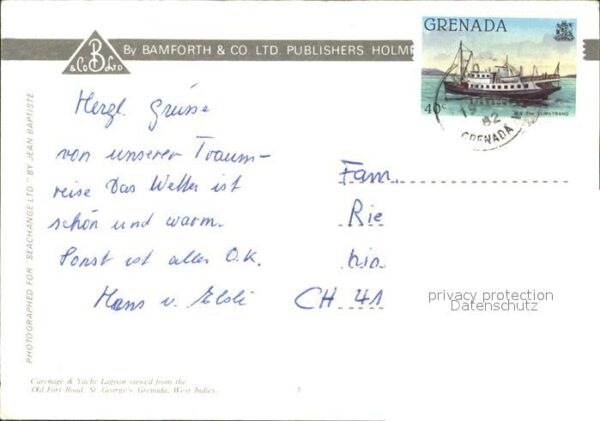 By BAMFORTH & CO. LTD. PUBLISHERS HOLM
B
& Co LTD
GRENADA
40c
19
82
GRENADA
Herzl. Grüsse
von unserer Traum-
reise Das Wetter ist
schön und warm.
Sonst ist alles O.K.
Hans u. Elsli
Fam.
Rie
CH 41
privacy protection
Datenschutz
PHOTOGRAPHED FOR SEACHANGE LTD. BY JEAN BAPTISTE
Carenage & Yacht Lagoon viewed from the
Old Fort Road, St. George's, Grenada, West Indies.